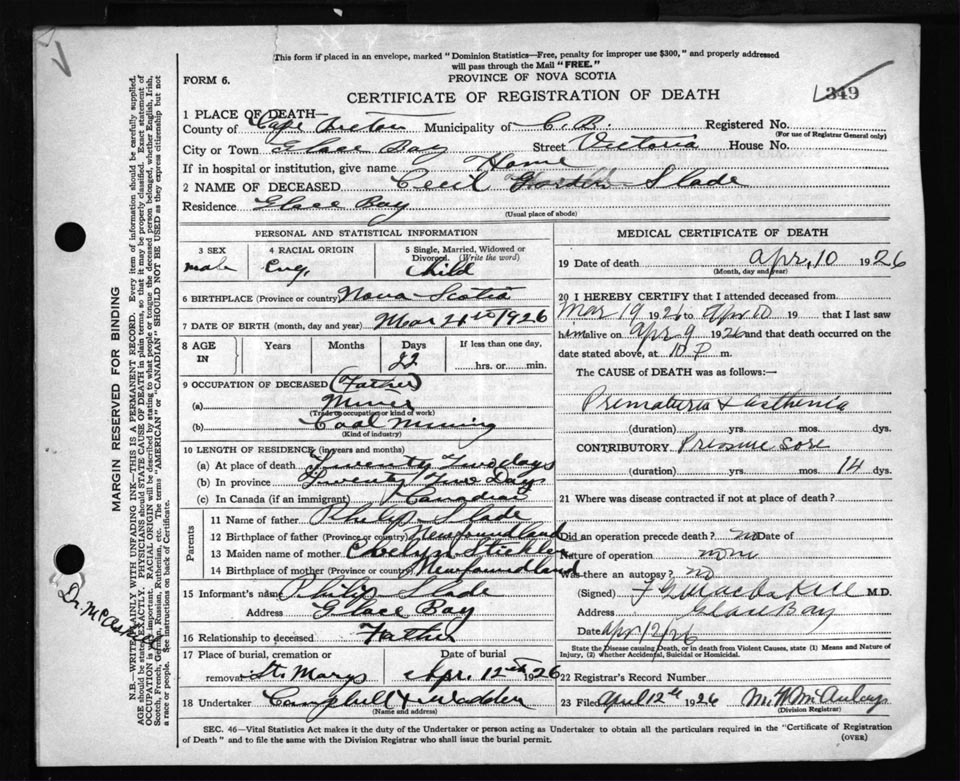 This form if placed in an envelope, marked "Dominion Statistics—Free, penalty for improper use $300," and properly addressed
will pass through the Mail "FREE."
FORM 6.
PROVINCE OF NOVA SCOTIA
CERTIFICATE OF REGISTRATION OF DEATH
349
1 PLACE OF DEATH—
County of Cape Breton Municipality of C. B. Registered No.
(For use of Registrar General only)
City or Town Glace Bay Street Victoria House No.
If in hospital or institution, give name Home
2 NAME OF DECEASED Cecil Gordon Slade
Residence Glace Bay
(Usual place of abode)
PERSONAL AND STATISTICAL INFORMATION
3 SEX 4 RACIAL ORIGIN 5 Single, Married, Widowed or
Divorced. (Write the word)
male Eng. Child
6 BIRTHPLACE (Province or country) Nova Scotia
7 DATE OF BIRTH (month, day and year) Mar 1926
8 AGE IN Years Months Days If less than one day,
22 hrs. or min.
9 OCCUPATION OF DECEASED (Father)
(a) Miner
(Trade or occupation or kind of work)
(b) Coal Mining
(Kind of industry)
10 LENGTH OF RESIDENCE (in years and months)
(a) At place of death Twenty Two days
(b) In province Twenty Two Days
(c) In Canada (if an immigrant) Canadian
Parents
11 Name of father Philip Slade
12 Birthplace of father (Province or country) Newfoundland
13 Maiden name of mother
14 Birthplace of mother (Province or country) Newfoundland
15 Informant's name Philip Slade
Address Glace Bay
16 Relationship to deceased Father
17 Place of burial, cremation or Date of burial
removal St. Marys Apr. 12th 1926
18 Undertaker Campbell & Wadden
(Name and address)
MEDICAL CERTIFICATE OF DEATH
19 Date of death Apr. 10 1926
(Month, day and year)
20 I HEREBY CERTIFY that I attended deceased from
Mar 19 1926 to Apr 10 19 that I last saw
him alive on Apr 9 1926 and that death occurred on
date stated above, at 10 P m.
The CAUSE of DEATH was as follows:—
Prematurity & asthenia
(duration) yrs. mos. dys.
CONTRIBUTORY Pressure Sore
(duration) yrs. mos. 14 dys.
21 Where was disease contracted if not at place of death?
Did an operation precede death? no Date of
Nature of operation none
Was there an autopsy? no
(Signed) M.D.
Address Glace Bay
Date Apr 12/26
State the Disease causing Death, or in death from Violent Causes, state (1) Means and Nature of
Injury, (2) whether Accidental, Suicidal or Homicidal.
22 Registrar's Record Number
23 Filed April 12th 1926
(Division Registrar)
SEC. 46—Vital Statistics Act makes it the duty of the Undertaker or person acting as Undertaker to obtain all the particulars required in the "Certificate of Registration
of Death" and to file the same with the Division Registrar who shall issue the burial permit.
(OVER)
MARGIN RESERVED FOR BINDING
N.B.—WRITE PLAINLY, WITH UNFADING INK—THIS IS A PERMANENT RECORD. Every item of information should be carefully supplied.
AGE should be stated EXACTLY. PHYSICIANS should STATE CAUSE OF DEATH in plain terms, so that it may be properly classified. Exact statement of
OCCUPATION is very important. RACIAL ORIGIN will be described by stating to what people or tongue the deceased person belonged, whether English, Irish,
Scotch, French, German, Russian, Ruthenian, etc. The terms "AMERICAN" or "CANADIAN" SHOULD NOT BE USED as they express citizenship but not
a race or people. See instructions on back of Certificate.